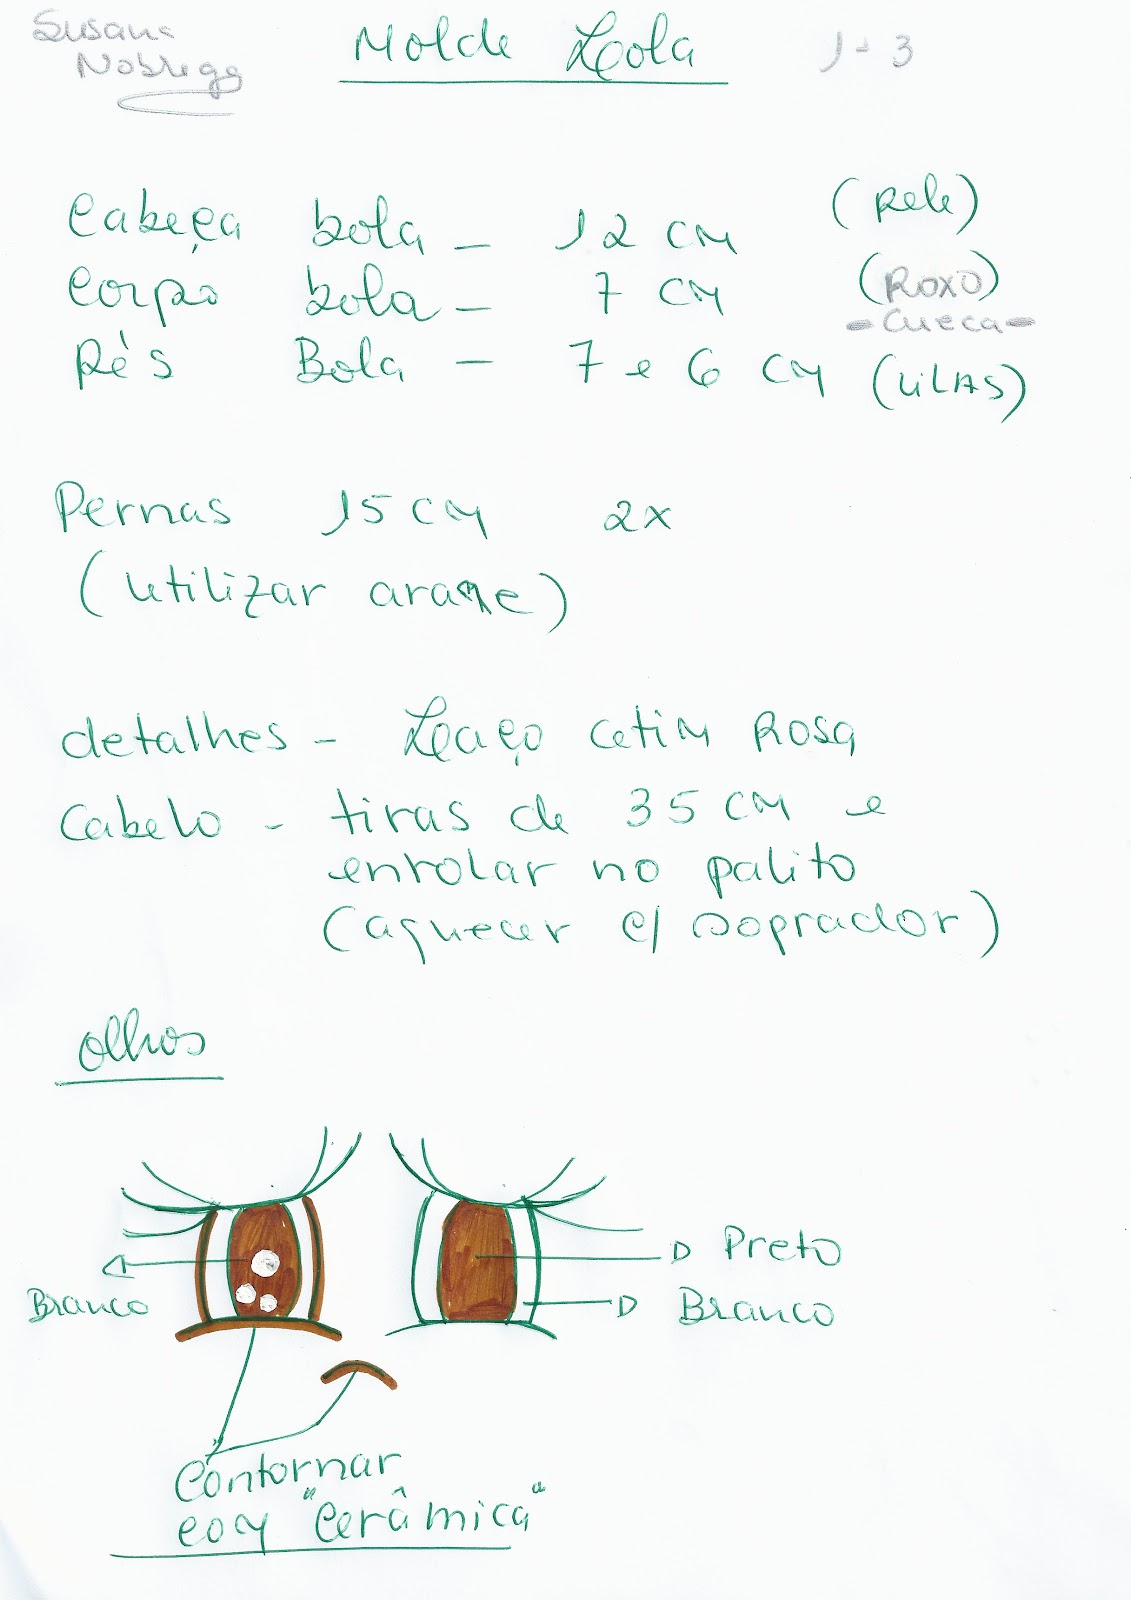 Susana
Nobrega
Molde Lola
1-3
Cabeça bola - 12 cm (Pele)
Corpo bola - 7 cm (Roxo)
- Cueca -
Pés Bola - 7 e 6 cm (LiLAS)
Pernas 15 cm 2x
(utilizar arame)
detalhes - Laço cetim Rosa
Cabelo - tiras de 35 cm e
enrolar no palito
(aquecer c/ soprador)
olhos
Preto
Branco
Branco
Contornar
com "Cerâmica"